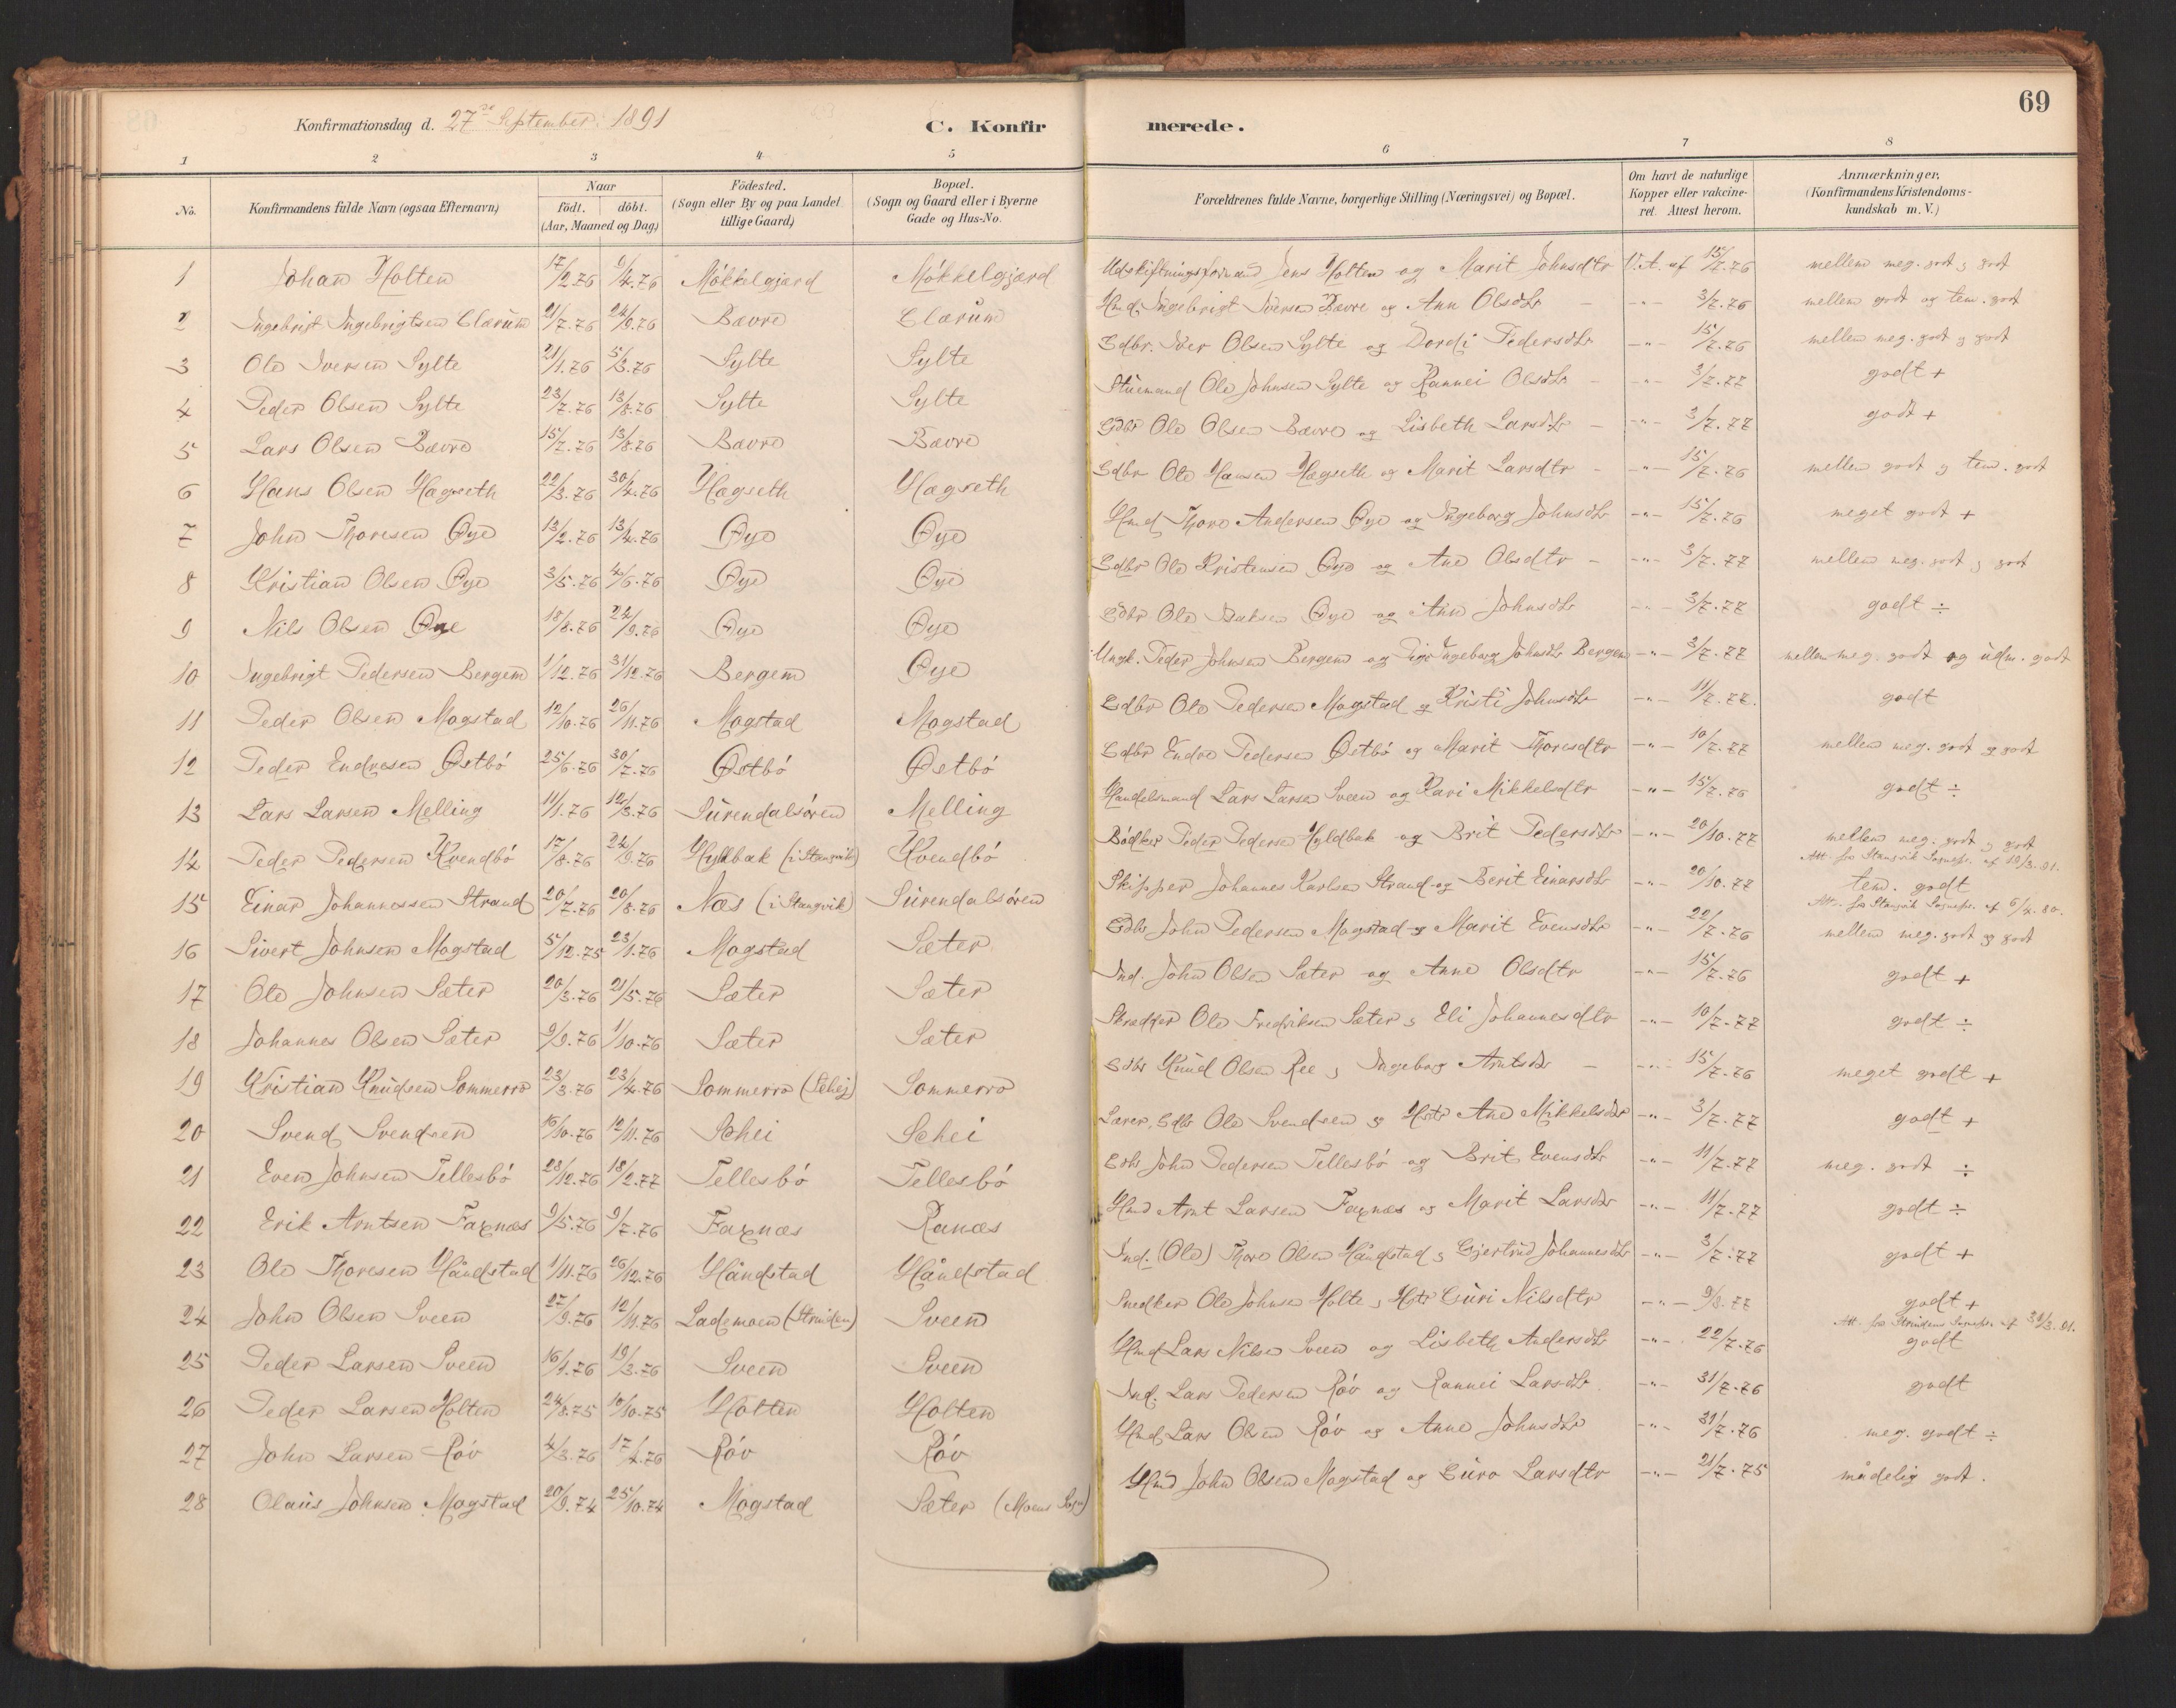 69
Konfirmationsdag d. 27de September 1891
C. Konfir merede.
1 2 3 4 5 6 7 8
No. Konfirmandens fulde Navn (ogsaa Efternavn) Naar födt. döbt. (Aar, Maaned og Dag) Födested. (Sogn eller By og paa Landet tillige Gaard) Bopæl. (Sogn og Gaard eller i Byerne Gade og Hus-No. Forældrenes fulde Navne, borgerlige Stilling (Næringsvei) og Bopæl. Om havt de naturlige Kopper eller vakcineret. Attest herom. Anmærkninger. (Konfirmandens Kristendomskundskab m. V.)
1 Johan Holten 17/2.76 9/4.76 Møkkelgjærd Møkkelgjærd Udskiftningsformand Jens Holten og Marit Johnsdtr V.A. af 15/7.76 mellem meg. godt og godt
2 Ingebrigt Ingebrigtsen Clærum 21/7.76 24/9.76 Bævre Clærum Hmd. Ingebrigt Iversen Bævre og Ann Olsdtr - -"- 3/7.76 mellem godt og tem. godt
3 Ole Iversen Sylte 21/1.76 5/3.76 Sylte Sylte Gdbr. Iver Olsen Sylte og Dordi Pedersdtr -"- 15/7.76 mellem meg. godt og godt
4 Peder Olsen Sylte 23/7.76 13/8.76 Sylte Sylte Stuemand Ole Johnsen Sylte og Rannei Olsdtr - -"- 3/7.77 godt +
5 Lars Olsen Bævre 15/7.76 13/8.76 Bævre Bævre Gdbr Ole Olsen Bævre og Lisbeth Larsdtr - -"- 3/7.77 godt +
6 Hans Olsen Hægseth 22/3.76 30/4.76 Hægseth Hægseth Gdbr Ole Hansen Hægseth og Marit Larsdtr - -"- 15/7.76 mellem godt og tem. godt
7 John Thoresen Øye 13/2.76 13/4.76 Øye Øye Hmd Thore Andersen Øye og Ingeborg Johnsdtr -"- 15/7.76 meget godt +
8 Kristian Olsen Øye 3/5.76 4/6.76 Øye Øye Gdbr Ole Kristensen Øye og Ane Olsdtr - -"- 3/7.77 mellem meg. godt og godt
9 Nils Olsen Øye 18/8.76 24/9.76 Øye Øye Gdbr Ole Isaksen Øye og Ann Johnsdtr -"- 3/7.77 godt ÷
10 Ingebrigt Pedersen Bergem 1/12.76 31/12.76 Bergem Øye Ungk. Peder Johnsen Bergem og Pige Ingeborg Johnsdtr Bergem -"- 3/7.77 mellem meg. godt og udm. godt
11 Peder Olsen Mogstad 12/10.76 26/11.76 Mogstad Mogstad Gdbr Ole Pedersen Mogstad og Kristi Johnsdtr -"- 11/7.77. godt
12 Peder Endresen Østbø 25/6.76 30/7.76 Østbø Østbø Gdbr Endre Pedersen Østbø og Marit Thoresdtr -"- 10/7.77 mellem meg. godt og godt
13 Lars Larsen Melling 11/1.76 12/3.76 Surendalsøren Melling Handelsmand Lars Larsen Sveen og Kari Mikkelsdtr -"- 15/7.76 godt ÷
14 Peder Pedersen Kvendbø 17/8.76 24/9.76 Hyldbak (i Stangvik) Kvendbø Bødker Peder Pedersen Hyldbak og Brit Pedersdtr -"- 20/10.77 mellem meg. godt og godt
Att. fra Stangvik Sognepr. af 19/3.91.
15 Einar Johannessen Strand 20/7.76 20/8.76 Næs (i Stangvik) Surendalsøren Skipper Johannes Karlsen Strand og Berit Einarsdtr -"- 20/10.77 tem. godt
Att. fra Stangvik Sognepr. af 6/4.80.
16 Sivert Johnsen Mogstad 5/12.75 23/1.76 Mogstad Sæter Gdbr John Pedersen Mogstad og Marit Evensdtr -"- 22/7.76 mellem meg. godt og godt
17 Ole Johnsen Sæter 20/3.76 21/5.76 Sæter Sæter Ind. John Olsen Sæter og Anne Olsdtr -"- 15/7.76 godt +
18 Johannes Olsen Sæter 9/9.76 1/10.76 Sæter Sæter Skrædder Ole Fredriksen Sæter og Eli Johannesdtr -"- 10/7.77 godt ÷
19 Kristian Knudsen Sommerro 23/3.76 23/4.76 Sommerro (Schej) Sommerro Gdbr Knud Olsen Ree og Ingeborg Arntsdtr - -"- 15/7.76 meget godt +
20 Svend Svendsen 16/10.76 12/11.76 Schei Schei Lærer, Gdbr Ole Svendsen og Hstr Ane Mikkelsdtr -"- 3/7.77 godt +
21 Even Johnsen Tellesbø 28/12.76 18/2.77 Tellesbø Tellesbø Gdbr John Pedersen Tellesbø og Brit Evensdtr -"- 11/7.77 meg. godt ÷
22 Erik Arntsen Faxnæs 9/5.76 9/7.76 Faxnæs Ranæs Hmd Arnt Larsen Faxnæs og Marit Larsdtr -"- 11/7.77 godt ÷
23 Ole Thoresen Håndstad 1/11.76 26/12.76 Håndstad Håndstad Ind. (Ole) Thore Olsen Håndstad og Gjertrud Johannesdtr -"- 3/7.77 godt +
24 John Olsen Sveen 27/9.76 12/11.76 Lademoen (Strinden) Sveen Snedker Ole Johnsen Holte og Hstr Guri Nilsdtr -"- 9/8.77 godt +
Att. fra Strindens Sognepr. af 31/3.91.
25 Peder Larsen Sveen 16/1.76 19/3.76 Sveen Sveen Hmd Lars Nilsen Sveen og Lisbeth Andersdtr -"- 22/7.76 godt
26 Peder Larsen Holten 24/8.75 10/10.75 Holten Holten Ind. Lars Pedersen Røv og Rannei Larsdtr -"- 31/7.76 godt
27 John Larsen Røv 4/3.76 17/4.76 Røv Røv Hmd Lars Olsen Røv og Anne Johnsdtr -"- 31/7.76 meg. godt ÷
28 Olaus Johnsen Mogstad 20/9.74 25/10.74 Mogstad Sæter (Moens Sogn) Hmd John Olsen Mogstad og Guro Larsdtr -"- 21/7.75 mådelig godt.